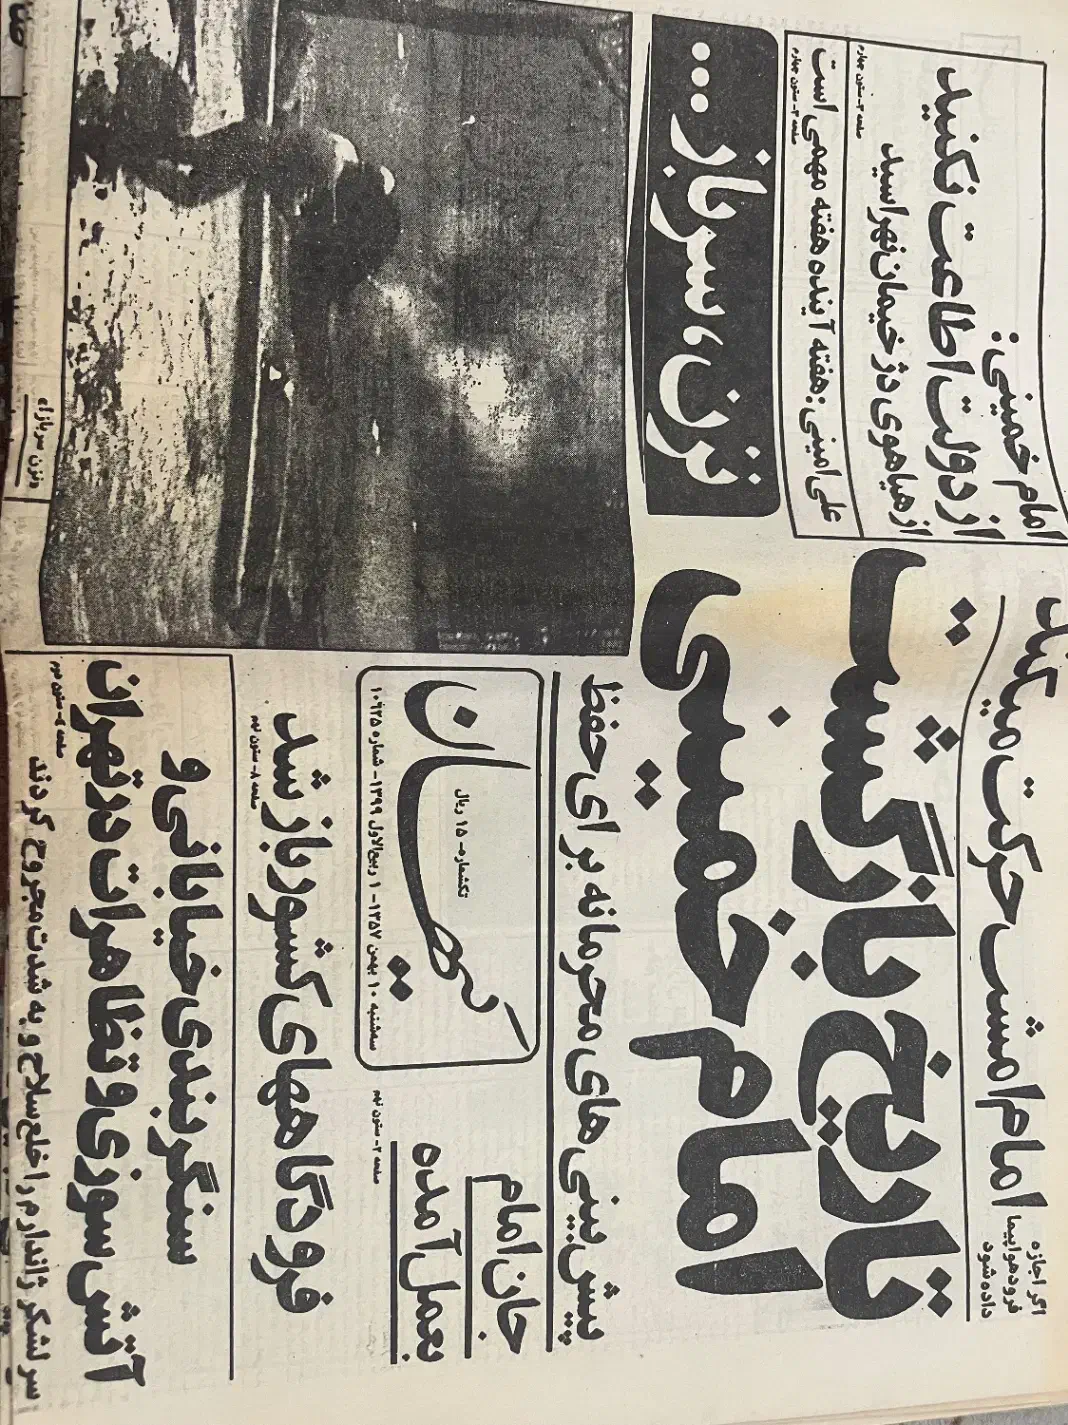 اگر اجازه
فرود هواپیما
داده شود
امام امشب حرکت میکند
تاریخ بازگشت
امام خمینی
امام خمینی:
از دولت اطاعت نکنید
از هیاهوی دژخیمان نهراسید
صفحه ۲- ستون چهارم
علی امینی: هفته آینده هفته مهمی است
صفحه ۲- ستون چهارم
نزن، سرباز...
پیش بینی های محرمانه برای حفظ
جان امام
بعمل آمده
صفحه ۲- ستون نهم
کیهان
تکشماره- ۱۵ ریال
سه‌شنبه ۱۰ بهمن ۱۳۵۷- ۱ ربیع‌الاول ۱۳۹۹- شماره ۱۰۹۲۵
فرودگاههای کشور باز شد
صفحه ۸- ستون نهم
سنگربندی خیابانی و
آتش سوزی و تظاهرات در تهران
صفحه ۸- ستون دوم
سرلشکر ژاندارم را خلع سلاح و به شدت مجروح کردند